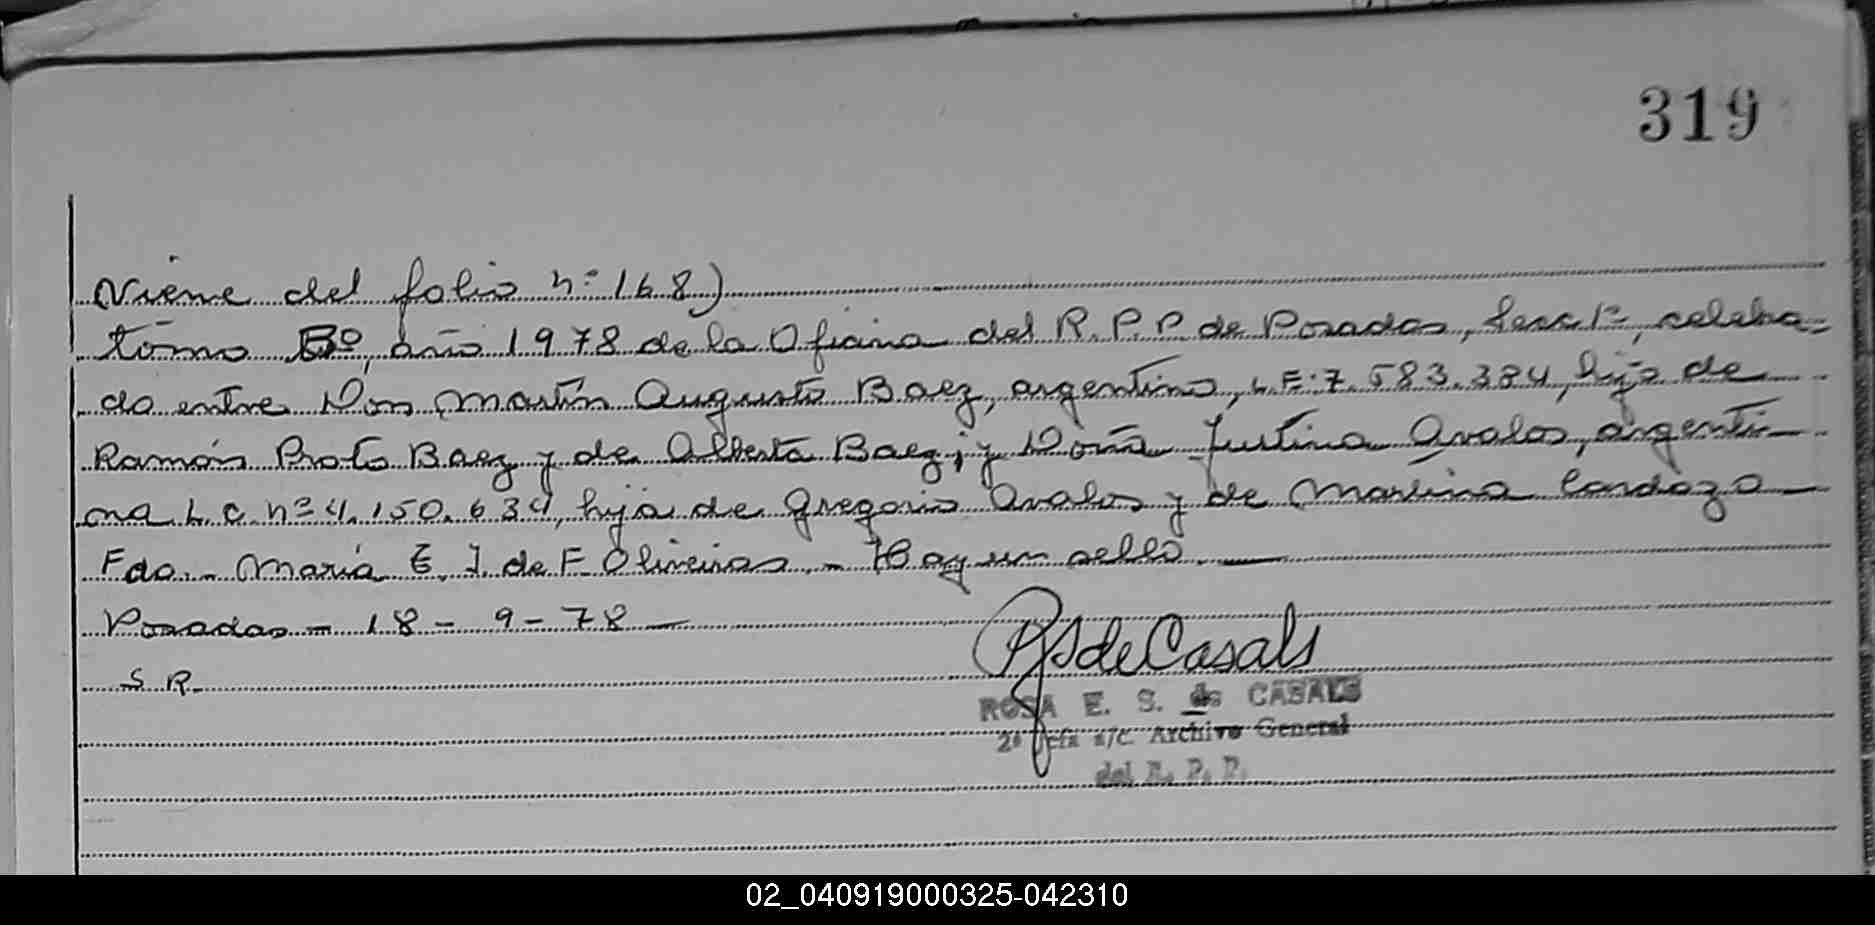 319
Viene del folio nº 168)
tomo 5º, año 1978 de la Oficina del R.P.P. de Posadas, Secc 1ª, celebra-
do entre Don Martín Augusto Baez, argentino, L.E: 7.583.384, hijo de
Ramón Proto Baez y de Alberta Baez; y Doña Justina Avalos, argenti-
na L.C. nº 4.150.634, hija de Gregorio Avalos y de Martina Cardozo
Fdo.- María E. J. de F. Oliveiras.- Hay un sello
Posadas - 18 - 9 - 78 -
S R.
de Casals
ROSA E. S. de CASALS
2ª Jefa a/c. Archivo General
del R. P. P.
02_040919000325-042310